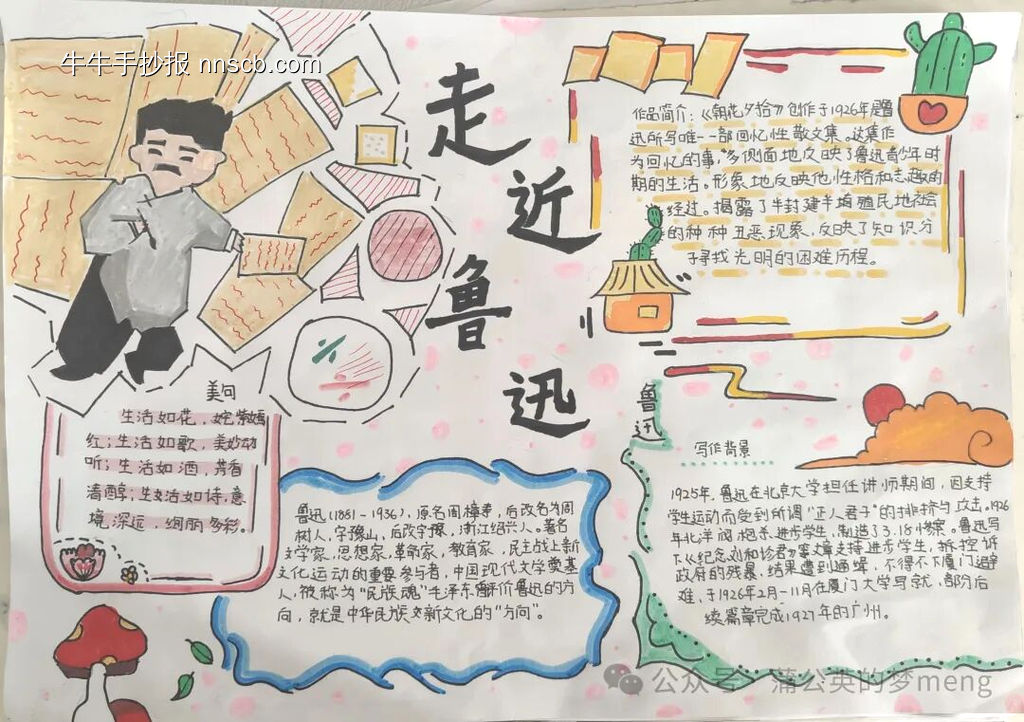 牛牛手抄报 nnscb.com
走
近
鲁
迅
作品简介：《朝花夕拾》创作于1926年是鲁
迅所写唯一一部回忆性散文集。这集作
为回忆的事，多侧面地反映了鲁迅青少年时
期的生活。形象地反映他性格和志趣的
经过。揭露了半封建半殖民地社会
的种种丑恶现象，反映了知识分
子寻找光明的困难历程。
美句
生活如花，姹紫嫣
红；生活如歌，美妙动
听；生活如酒，芳香
清醇；生活如诗，意
境深远，绚丽多彩。
鲁迅（1881-1936），原名周樟寿，后改名为周
树人，字豫山，后改字豫，浙江绍兴人。著名
文学家，思想家，革命家，教育家，民主战上新
文化运动的重要参与者，中国现代文学奠基
人，被称为“民族魂”毛泽东评价鲁迅的方
向，就是中华民族文新文化的“方向”。
鲁
迅
写作背景
1925年，鲁迅在北京大学担任讲师期间，因支持
学生运动而受到所谓“正人君子”的排挤与攻击。1926
年北洋阀炮杀进步学生，制造了3.18惨案。鲁迅写
下《纪念刘和珍君》等文章支持进步学生，控诉
政府的残暴，结果遭到通缉，不得不下厦门避
难，于1926年2月-11月在厦门大学写就，部分后
续篇章完成1927年的广州。
公众号·蒲公英的梦meng